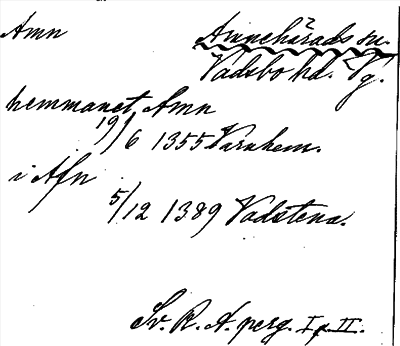 Amn Amnehärads sn.
Vadsbo hd. Vg.
hemmanet Amn
19/6 1355 Varnhem.
i Afn
5/12 1389 Vadstena.
Sv. R. A. perg. I, II.